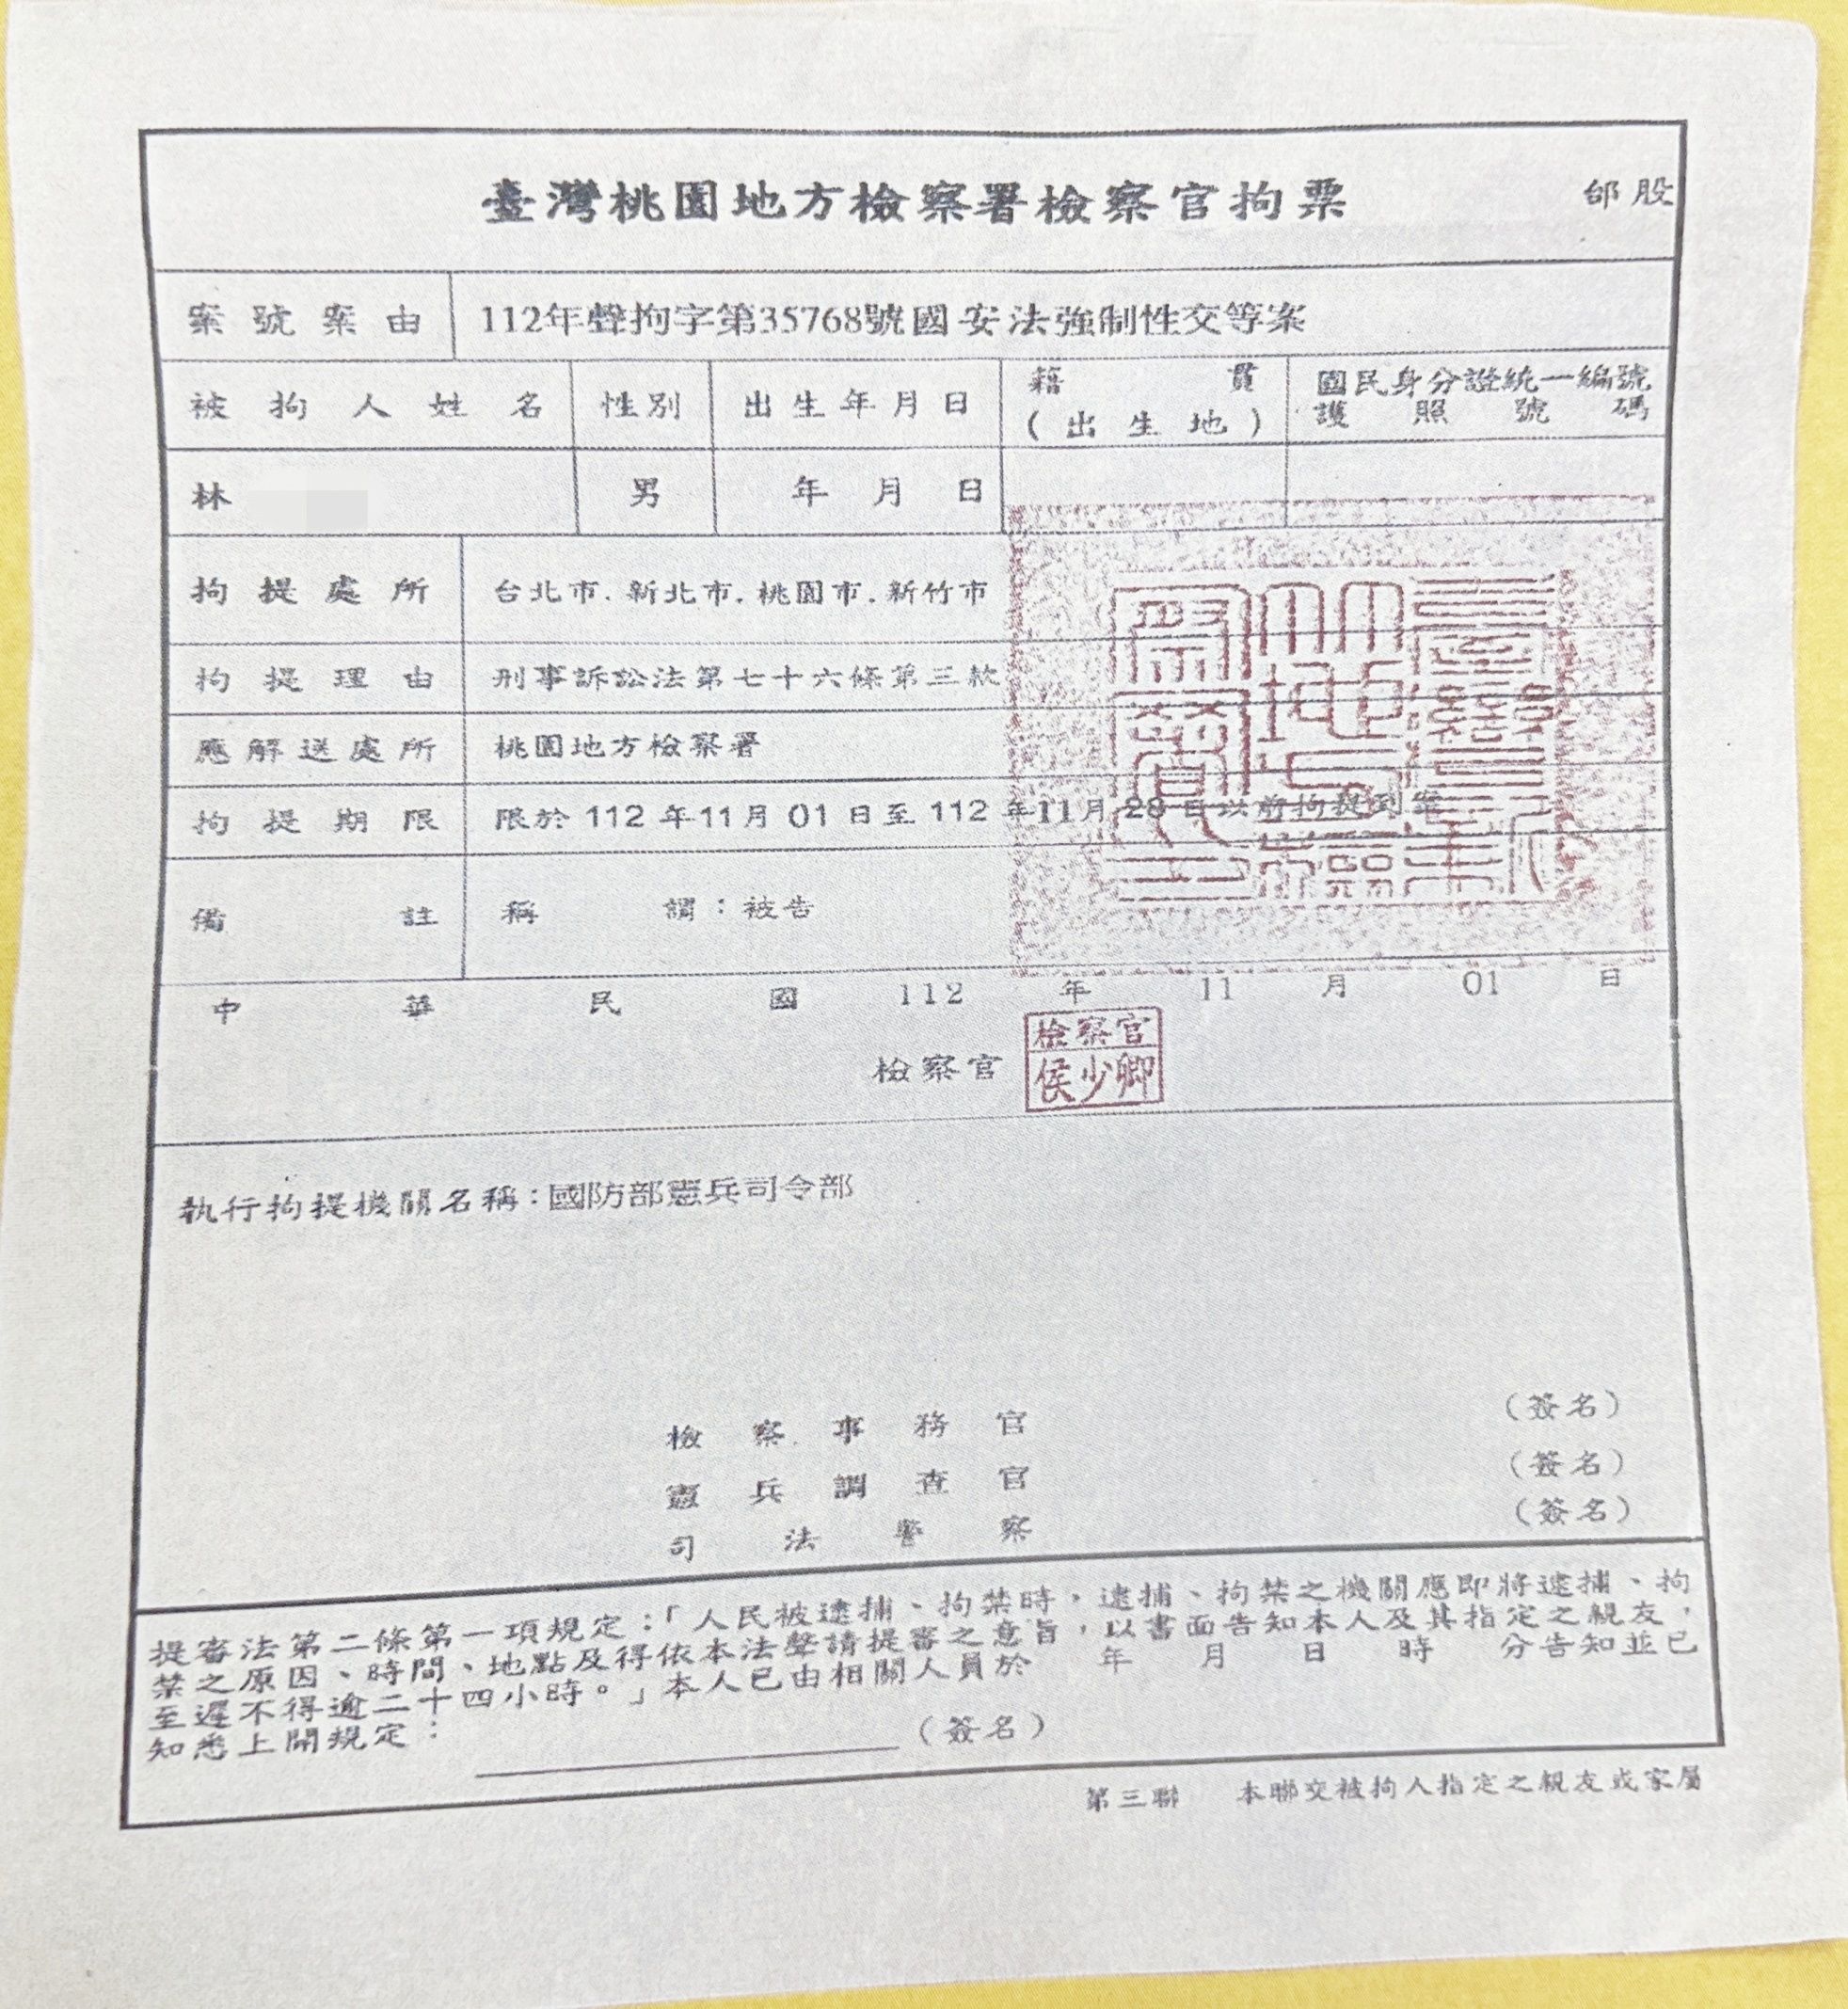 臺灣桃園地方檢察署檢察官拘票
邰股
案號案由 112年聲拘字第35768號國安法強制性交等案
被拘人姓名 性別 出生年月日 籍貫(出生地) 國民身分證統一編號護照號碼
林 男 年 月 日
拘提處所 台北市.新北市.桃園市.新竹市
拘提理由 刑事訴訟法第七十六條第三款
應解送處所 桃園地方檢察署
拘提期限 限於 112 年11月 01 日至 112 年11月 28 日以前拘提到案
備註 稱謂:被告
中華民國 112 年 11 月 01 日
檢察官 檢察官 侯少卿
執行拘提機關名稱:國防部憲兵司令部
檢察事務官 (簽名)
憲兵調查官 (簽名)
司法警察 (簽名)
提審法第二條第一項規定:「人民被逮捕、拘禁時,逮捕、拘禁之機關應即將逮捕、拘
禁之原因、時間、地點及得依本法聲請提審之意旨,以書面告知本人及其指定之親友,
至遲不得逾二十四小時。」本人已由相關人員於 年 月 日 時 分告知並已
知悉上開規定: (簽名)
第三聯 本聯交被拘人指定之親友或家屬